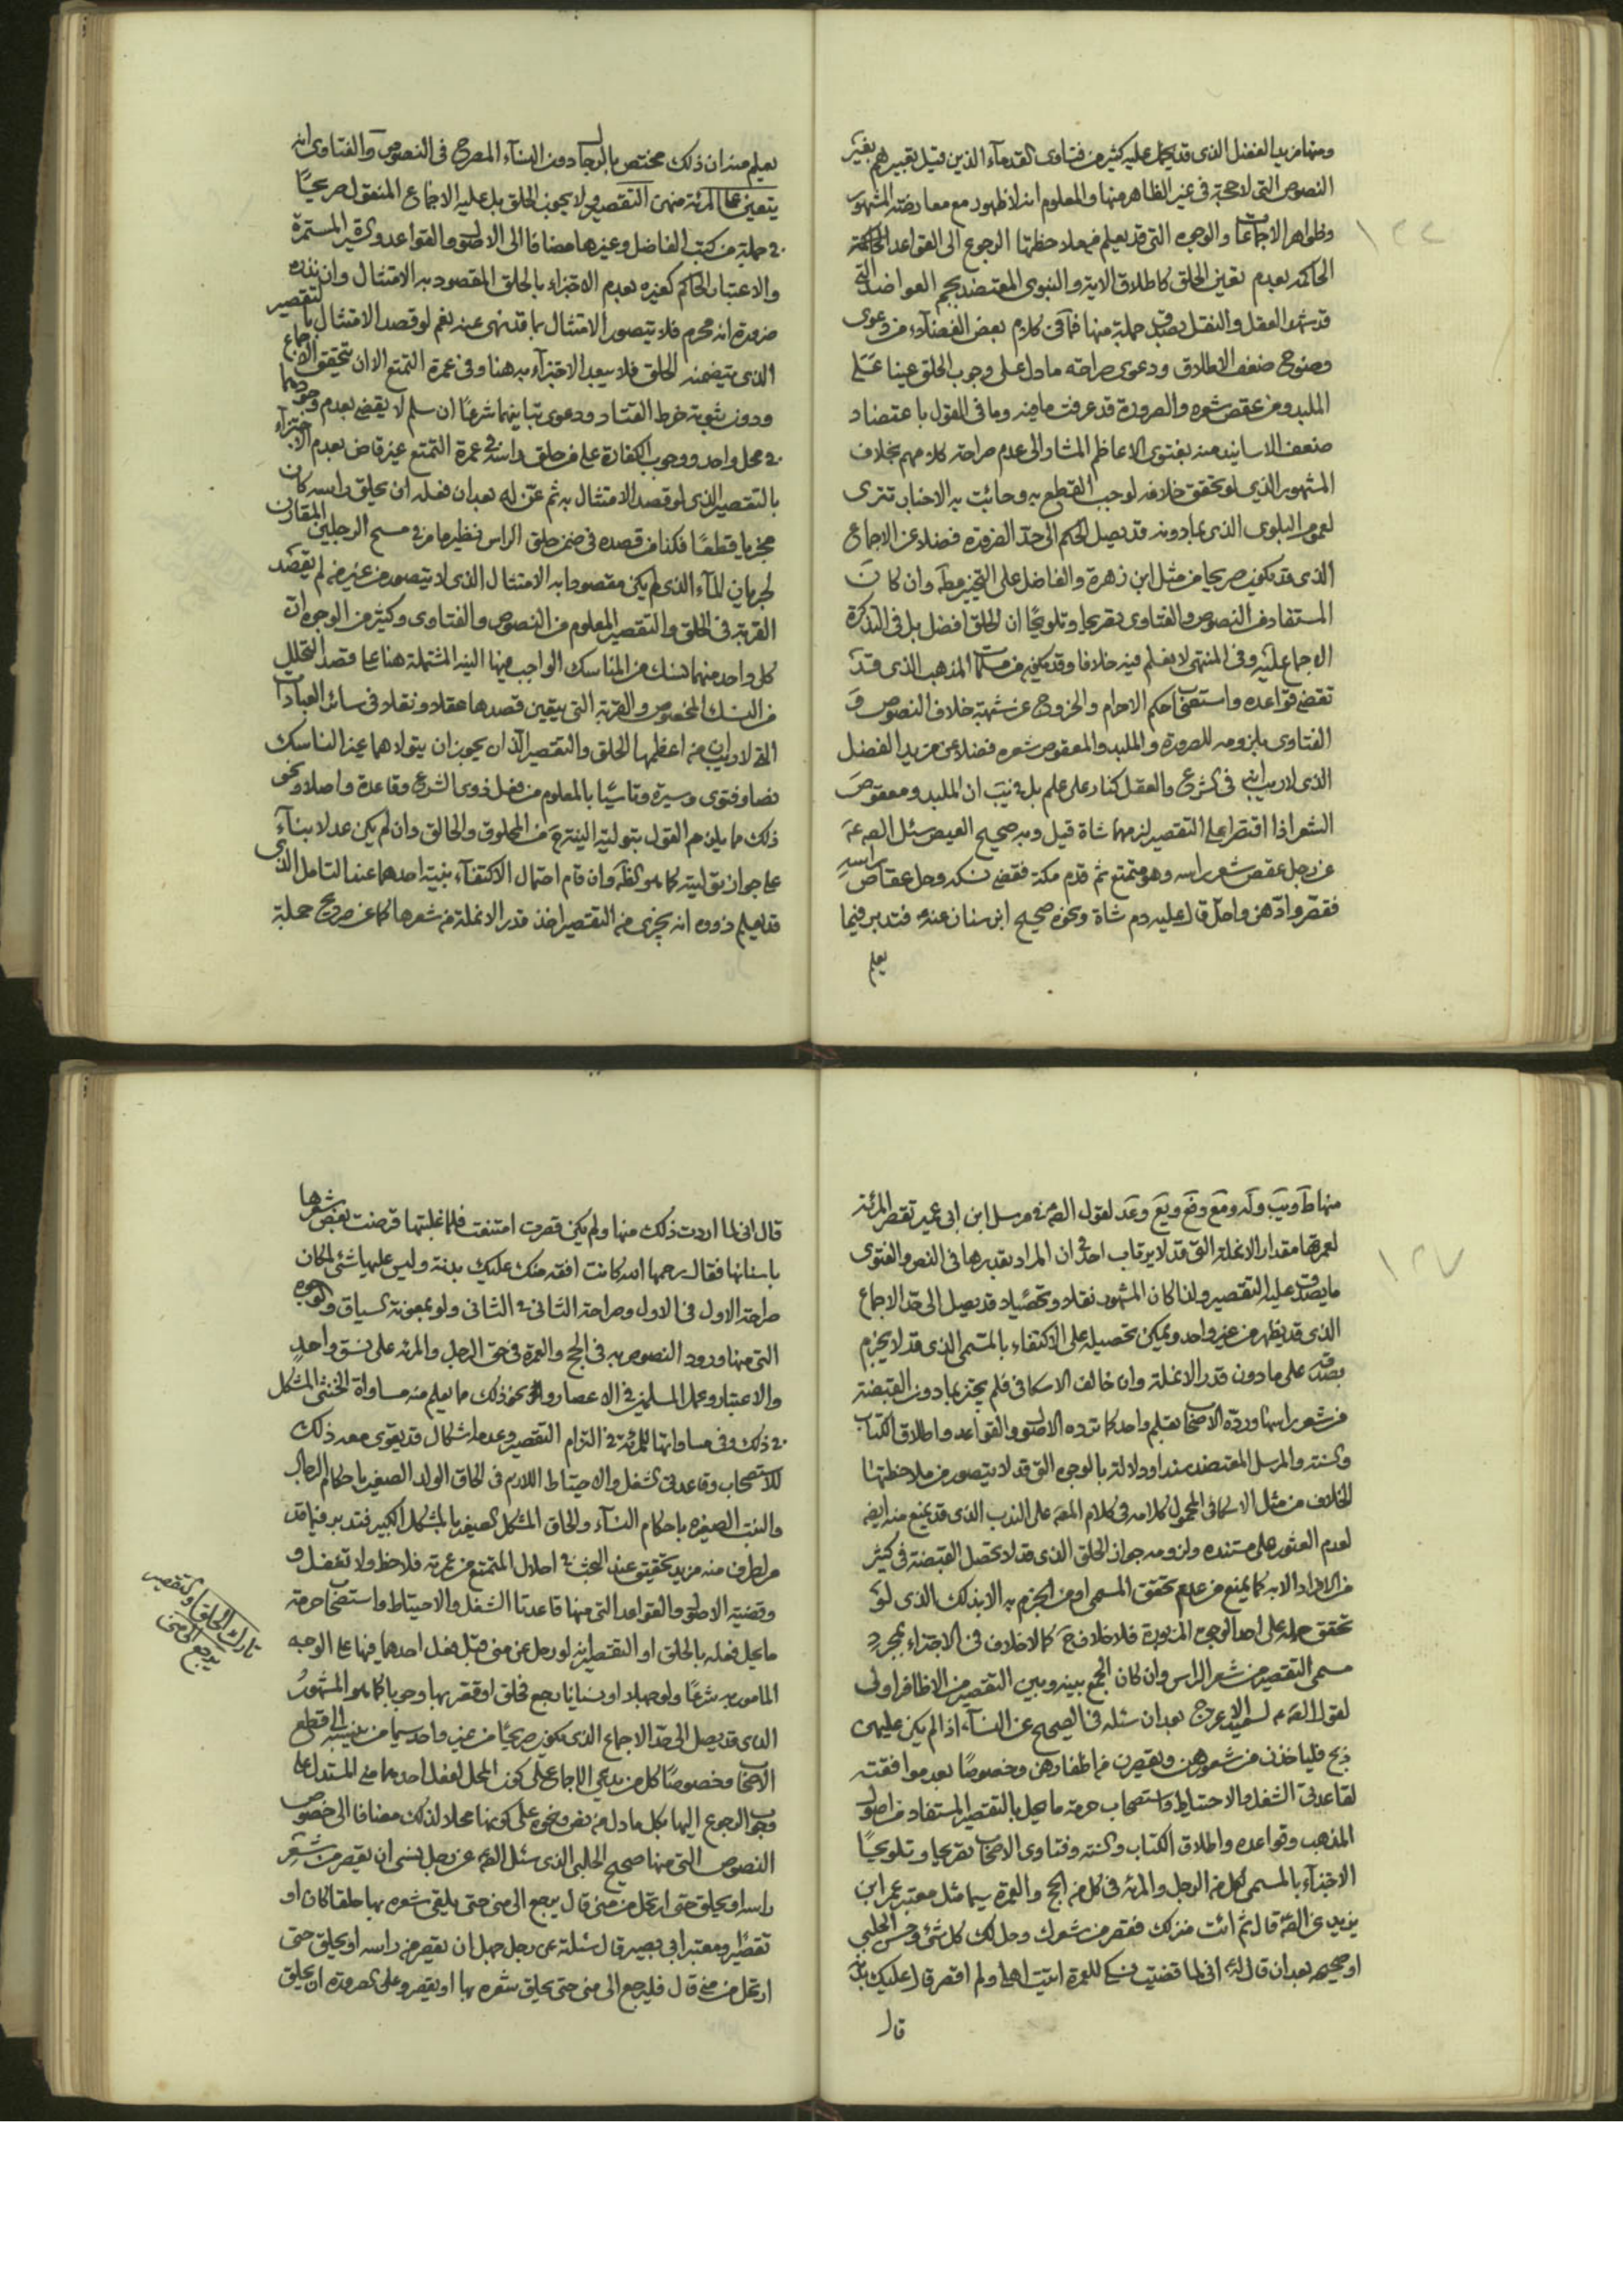 ومنها مزيد الفضل الذى قد يحمل عليه كثير من فتاوى القدماء الذين قيل بتعبيرهم بغير
النصوص التى لا حجة فى غير الظاهر منها والمعلوم انه لا ظهور مع معارضته المشهور
وظواهر الاجماعات والوجوه التى قد يعلم فى ملاحظتها الرجوع الى القواعد المحكمة
١٢٦
الحاكمة بعدم تعين الحلق كاطلاق الاية والنبوى المعتضد بجم العواضد التى
قد شهد العقل والنقل بصدق جملة منها فما فى كلام بعض الفضلاء من دعوى
وضوح ضعف الاطلاق ودعوى صراحة ما دل على وجوب الحلق عينا على
الملبد ومن عقص شعره والصرورة قد عرفت ما فيه وما فى القول باعتضاد
ضعف الاسانيد منه بفتوى الاعاظم المشار الى عدم صراحة كلامهم بخلاف
المشهور الذى لو تحقق خلافه لوجب القطع به وجائت به الاخبار تترى
لعموم البلوى الذى بما دونه قد يصل الحكم الى حد الضرورة فضلا عن الاجماع
الذى قد يكون صريحا من مثل ابن زهرة والفاضل على التخيير مطه وان كان
المستفاد من النصوص والفتاوى تصريحا وتلويحا ان الحلق افضل بل فى التذكرة
الاجماع عليه وفى المنتهى لا يعلم فيه خلافا وقد يكون من مسلمات المذهب الذى قد
تقضى قواعده واستصحاب حكم الاحرام والخروج عن شبهة خلاف النصوص و
الفتاوى بلزومه للصرورة والملبد والمعقوص شعره فضلا عن مزيد الفضل
الذى لا ريب فيه فى الشرع والعقل كنار على علم بل فى يب ان الملبد ومعقوص
الشعر اذا اقتصرا على التقصير لزمهما شاة قيل وبه صحيح العيص سئل الص عه
عن رجل عقص شعر راسه وهو متمتع ثم قدم مكة فقضى نسكه وحل عقاص راسه
فقصر وادهن واحل قال عليه دم شاة ونحوه صحيح ابن سنان عنه فتدبر فيما
يعلم
يعلم منه ان ذلك مختص بالرجال دون النساء المصرح فى النصوص والفتاوى انه
يتعين على المرئة منهن التقصير ولا يجوز الحلق بل عليه الاجماع المنقول صريحا
فى جملة من كتب الفاضل وغيرها مضافا الى الاصل والقواعد والسيرة المستمرة
والاعتبار الحاكم كغيره بعدم الاجتزاء بالحلق المقصود به الامتثال وان نذره
ضرورة انه محرم فلا يتصور الامتثال بما قد نهى عنه نعم لو قصد الامتثال بالتقصير
الذى يتضمنه الحلق فلا يبعد الاجتزاء به هنا وفى عمرة التمتع الا ان تتحقق الاجماع
ودون ثبوته خرط القتاد ودعوى تباينهما شرعا ان سلم لا يقضى بعدم وجودهما
فى محل واحد ووجوب الكفارة على من حلق راسه فى عمرة التمتع غير قاض بعدم الاجتزاء
بالتقصير الذى لو قصد الامتثال به ثم عن له بعد ان فعله ان يحلق راسه كان
مجزيا قطعا فكذا من قصده فى ضمن حلق الراس فنظير ما مر فى مسح الرجلين المقارن
لجريان الماء الذى لم يكن مقصودا به الامتثال الذى لا يتصور من غير من لم يقصد
القربة فى الحلق والتقصير المعلوم من النصوص والفتاوى وكثير من الوجوه ان
كل واحد منهما نسك من المناسك الواجب فيها النية المشتملة هنا على قصد التحلل
من النسك المخصوص والقربة التى يتعين قصدها عقلا ونقلا فى سائر العبادات
التى لا ريب ان من اعظمها الحلق والتقصير الذان يجوز ان يتولاهما غير الناسك
نصا وفتوى وسيرة وتاسيا بالمعلوم من فعل ذوى الشرع وقاعدة واصلا ونحو
ذلك مما يلزمهم القول بتولية النية من المحلوق والحالق وان لم يكن عدلا بناء
على جواز توليته كما هو الظ وان قام احتمال الاكتفاء بنية احدهما عند التامل الذى
قد يعلم ذووه انه يجزى من التقصير اخذ قدر الانملة من شعرها كما عن صريح جملة
منها ط ويب وله ومع وفع ويع وعد لقول الص ع فى مرسل ابن ابى عمير تقصر المرئة
لعمرتها مقدار الانملة التى قد لا يرتاب احد فى ان المراد بتقديرها فى النص والفتوى
ما يصدق عليه التقصير ولذا كان المشهور نقلا وتحصيلا قد يصل الى حد الاجماع
١٢٧
الذى قد يظهر من غير واحد ويمكن تحصيله على الاكتفاء بالمسمى الذى قد لا يجزم
بصدقه على ما دون قدر الانملة وان خالف الاسكافى فلم يجتز بما دون القبضة
من شعر راسها ورده الاصحاب بقلم واحد كما ترده الاصول والقواعد واطلاق الكتاب
والسنة والمرسل المعتضد سندا ودلالة بالوجوه التى قد لا يتصور من ملاحظتها
الخلاف من مثل الاسكافى المحمول كلامه فى كلام المقه على الندب الذى قد يمنع منه ايضه
لعدم العثور على مستنده ولزومه جواز الحلق الذى قد لا تحصل القبضة فى كثير
من الافراد الا به كما يمنع من عدم تحقق المسمى او من الجزم به الا بذلك الذى لو
تحقق حمله على احد الوجوه المزبورة فلا خلاف ح كما لا خلاف فى الاجتزاء بمجرد
مسمى التقصير من شعر الراس وان كان الجمع بينه وبين التقصير من الاظافر اولى
لقول الص ع لسعيد الاعرج بعد ان سئله فى الصحيح عن النساء اذا لم يكن عليهن
ذبح فلياخذن من شعورهن ويقصرن من اظفارهن وخصوصا بعد موافقته
لقاعدتى الشغل والاحتياط واستصحاب حرمة ما يحل بالتقصير المستفاد من اصول
المذهب وقواعده واطلاق الكتاب والسنة وفتاوى الاصحاب تصريحا وتلويحا
الاجتزاء بالمسمى لكل من الرجل والمرئة فى كل من الحج والعمرة سيما مثل معتبر عمر ابن
يزيد عن الص ع قال ثم ائت منزلك فقصر من شعرك وحل لك كل شئ وحسن الحلبى
او صحيحه بعد ان قال له انى لما قضيت نسكى للعمرة اتيت اهلى ولم اقصر قال عليك بدنة
قال
قال انى لما اردت ذلك منها ولم يكن قصرت امتنعت فلما غلبتها قرضت بعض شعرها
باسنانها فقال رحمها الله كانت افقه منك عليك بدنة وليس عليها شئ لمكان
صراحة الاول فى الاول وصراحة الثانى فى الثانى ولو بمعونة السياق والوجوه
التى منها ورود النصوص به فى الحج والعمرة فى حق الرجل والمرئة على نسق واحد
والاعتبار وعمل المسلمين فى الاعصار ونحو ذلك مما يعلم منه مساواة الخنثى المشكل
فى ذلك وفى مساواتها للمرئة فى التزام التقصير وعدمه اشكال قد يقوى معه ذلك
للاستصحاب وقاعدتى الشغل والاحتياط اللازم فى الحاق الولد الصغير باحكام الرجال
والبنت الصغيرة باحكام النساء والحاق المشكل الصغير بالمشكل الكبير فتدبر فيما قد
مر لطرف منه مزيد تحقيق عند البحث فى احلال المتمتع من عمرته فلاحظ ولا تغفل و
وقضية الاصول والقواعد التى منها قاعدتا الشغل والاحتياط واستصحاب حرمة
ما يحل فعله بالحلق او التقصير انه لو رحل عن منى قبل فعل احدهما فيها على الوجه
تارك الحلق والتقصير
يرجع الى منى
المامور به شرعا ولو جهلا او نسيانا رجع فحلق او قصر بها وجوبا كما هو المشهور
الذى قد يصل الى حد الاجماع الذى يكون صريحا من غير واحد سيما من ينسبه الى قطع
الاصحاب وخصوصا كل من يدعى الاجماع على كون المحل لفعل احدهما منى المستدل على
وجوب الرجوع اليها بكل ما دل من نص ونحوه على كونها محلا لذلك مضافا الى خصوص
النصوص التى منها صحيح الحلبى الذى سئل الص ع عن رجل نسى ان يقصر من شعر
راسه او يحلق حتى ارتحل من منى قال يرجع الى منى حتى يلقى شعره بها حلقا كان او
تقصيرا ومعتبر ابى بصير قال سئلته عن رجل جهل ان يقصر من راسه او يحلق حتى
ارتحل من منى قال فليرجع الى منى حتى يحلق شعره بها او يقصر وعلى الصرورة ان يحلق